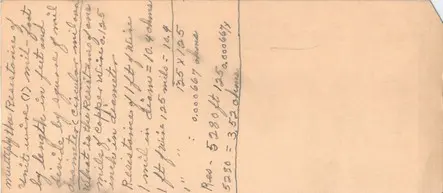 Multiply the Resistance of
unit wire (1) mil-foot
by length in feet and
divide by square of mil
diameter (circular mil area
What is the Resistance of one
mile of copper wire 125
mils in diameter
Resistance of 1 ft of wire
1 mil in diam = 10.4 ohms
1 ft of wire 125 mils = 10.4
125 x 125
1 " " = 0.000667 ohms
Res - 5280 ft 125 = .000667 x
5280 = 3.52 ohms